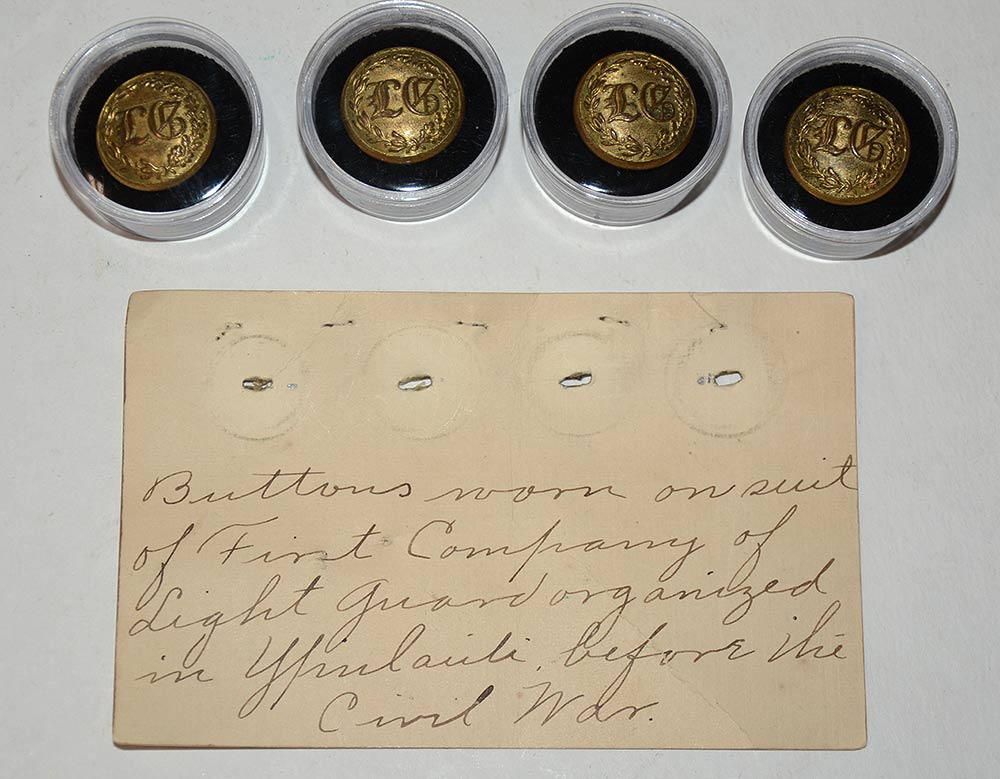 LG LG LG LG
Buttons worn on suit
of First Company of
Light Guard organized
in Ypsilanti, before the
Civil War.